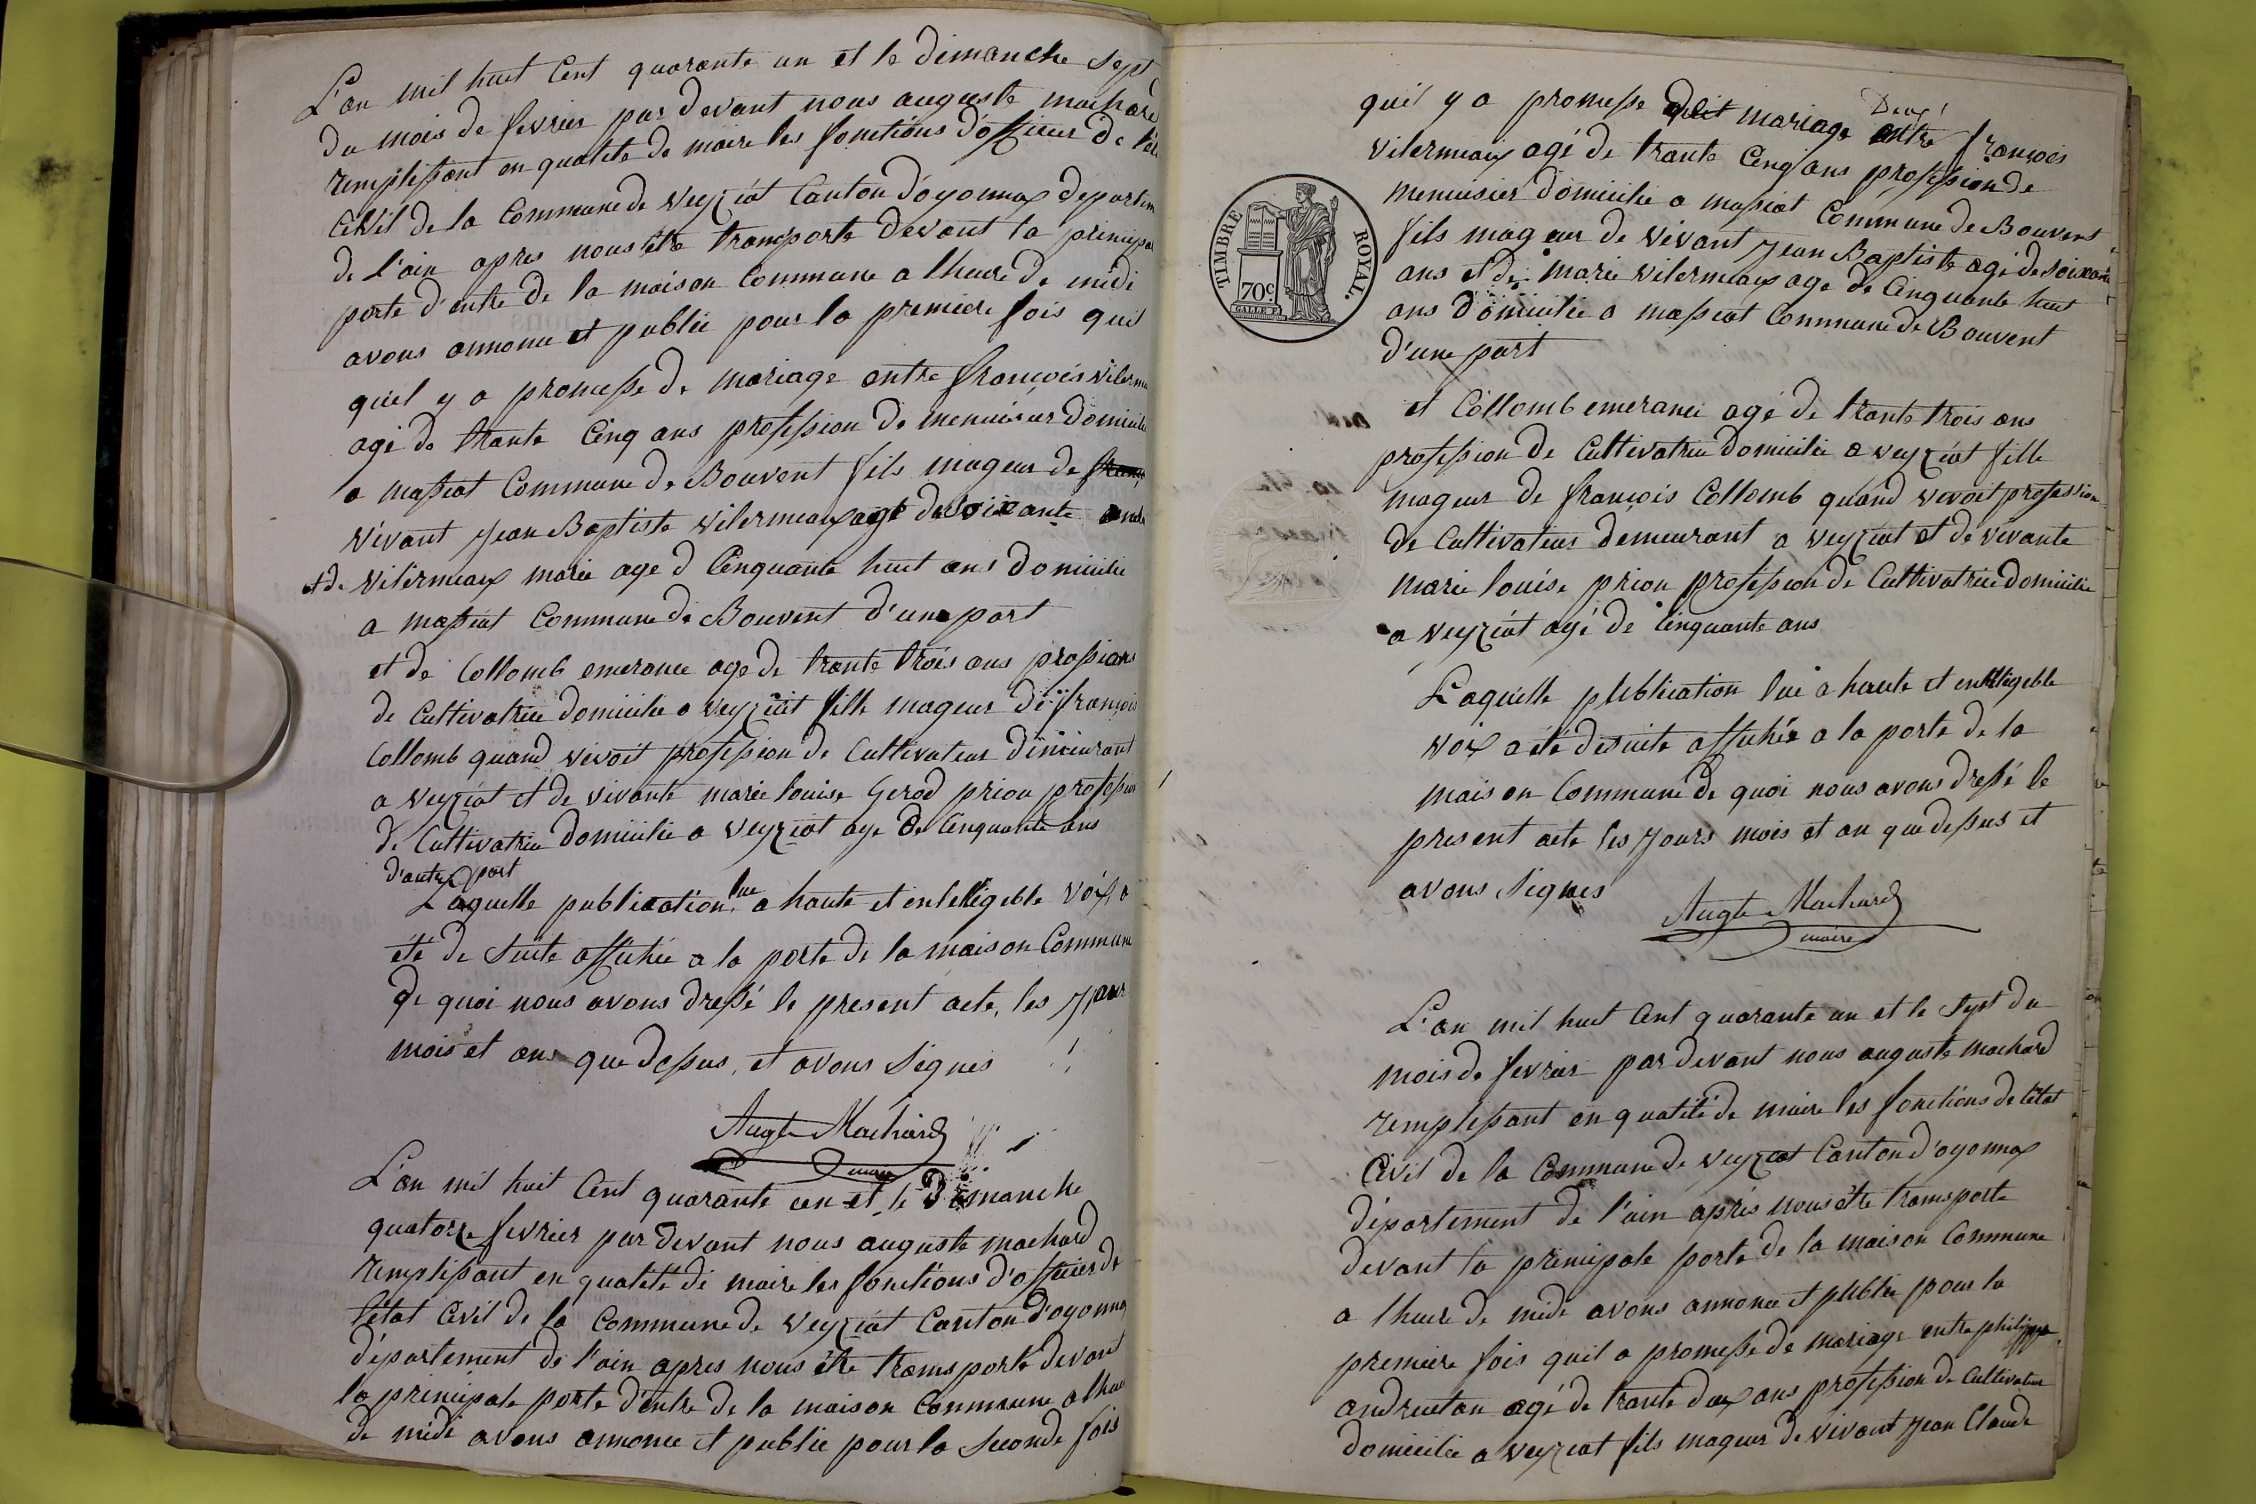 L'an mil huit Cent quarante un et le dimanche Sept
du mois de fevrier par devant nous auguste machard
remplissant en qualité de maire les fonctions d'officier de l'éta
Civil de la Commune de Veyziat Canton d'oyonnax departem
de l'ain apres nous être transporté devant la principa
porte d'entre de la maison Commune a lheure de midi
avons annoncé et publié pour la premiere fois quil
quil y a promesse de mariage entre françois vilerm
agé de trante Cinq ans profession de menuisier domicilie
a massiat Commune de Bouvent fils mageur de
vivant jean Baptiste vilermeaux agé de soixante
et de vilermeaux marie age d Cinquante huit ans domicilie
a massiat Commune de Bouvent d'une part
et de Collomb emerance age de trante trois ans prossions
de Cultivatrice domicilie a veyziat fille mageur de françois
Collomb quand vivoit profession de Cultivateur demeurant
a veyziat et de vivante marie louise Gerod priou profession
de Cultivatrice domicilie a veyziat age de Cinquante ans
d'autre part
Laquelle publication lue a haute et entelligeble voix a
été de suite affichée a la porte de la maison Commune
de quoi nous avons dressé le present acte, les jour
mois et ans que dessus, et avons signés
Augte Machard
maire
L'an mil huit Cent quarante un et le Dimanche
quatorze fevrier par devant nous auguste machard
remplissant en qualité de maire les fonctions d'officier de
l'état Civil de la Commune de veyziat Canton d'oyonnax
département de l'ain apres nous être transporté devant
la principale porte d'entre de la maison Commune a lheure
de midi avons annoncé et publie pour la seconde fois
quil y a promesse mariage Deux! entre françois
vilermeaux agé de trante Cinq ans profession de
menuisier domicilie a massiat Commune de Bouvent
fils mageur de vivant jean Baptiste agé de soixante
ans et de marie vilermeaux age de Cinquante huit
ans domicilie a massiat Commune de Bouvent
d'une part
TIMBRE ROYAL.
70c.
et Collomb emerance agé de trante trois ans
profession de Cultivatrice domicilie a veyziat fille
mageur de françois Collomb quand vivoit profession
de Cultivateur demeurant a veyziat et de vivante
marie louise priou profession de Cultivatrice domicilie
a veyziat agé de Cinquante ans
Laquelle publication lue a haute et entelligeble
voix a été desuite affichée a la porte de la
maison Commune de quoi nous avons dressé le
present acte les jours mois et an que dessus et
avons signés
Augte Machard
maire
L'an mil huit Cent quarante un et le Sept du
mois de fevrier par devant nous auguste machard
remplissant en qualité de maire les fonctions de l'état
Civil de la Commune de veyziat Canton d'oyonnax
département de l'ain apres nous être transporté
devant la principale porte de la maison Commune
a lheure de midi avons annoncé et publié pour la
premiere fois quil a promesse de mariage entre philippe
andruetan agé de trante deux ans profession de Cultivateur
domicilie a veyziat fils mageur de vivant jean Claude